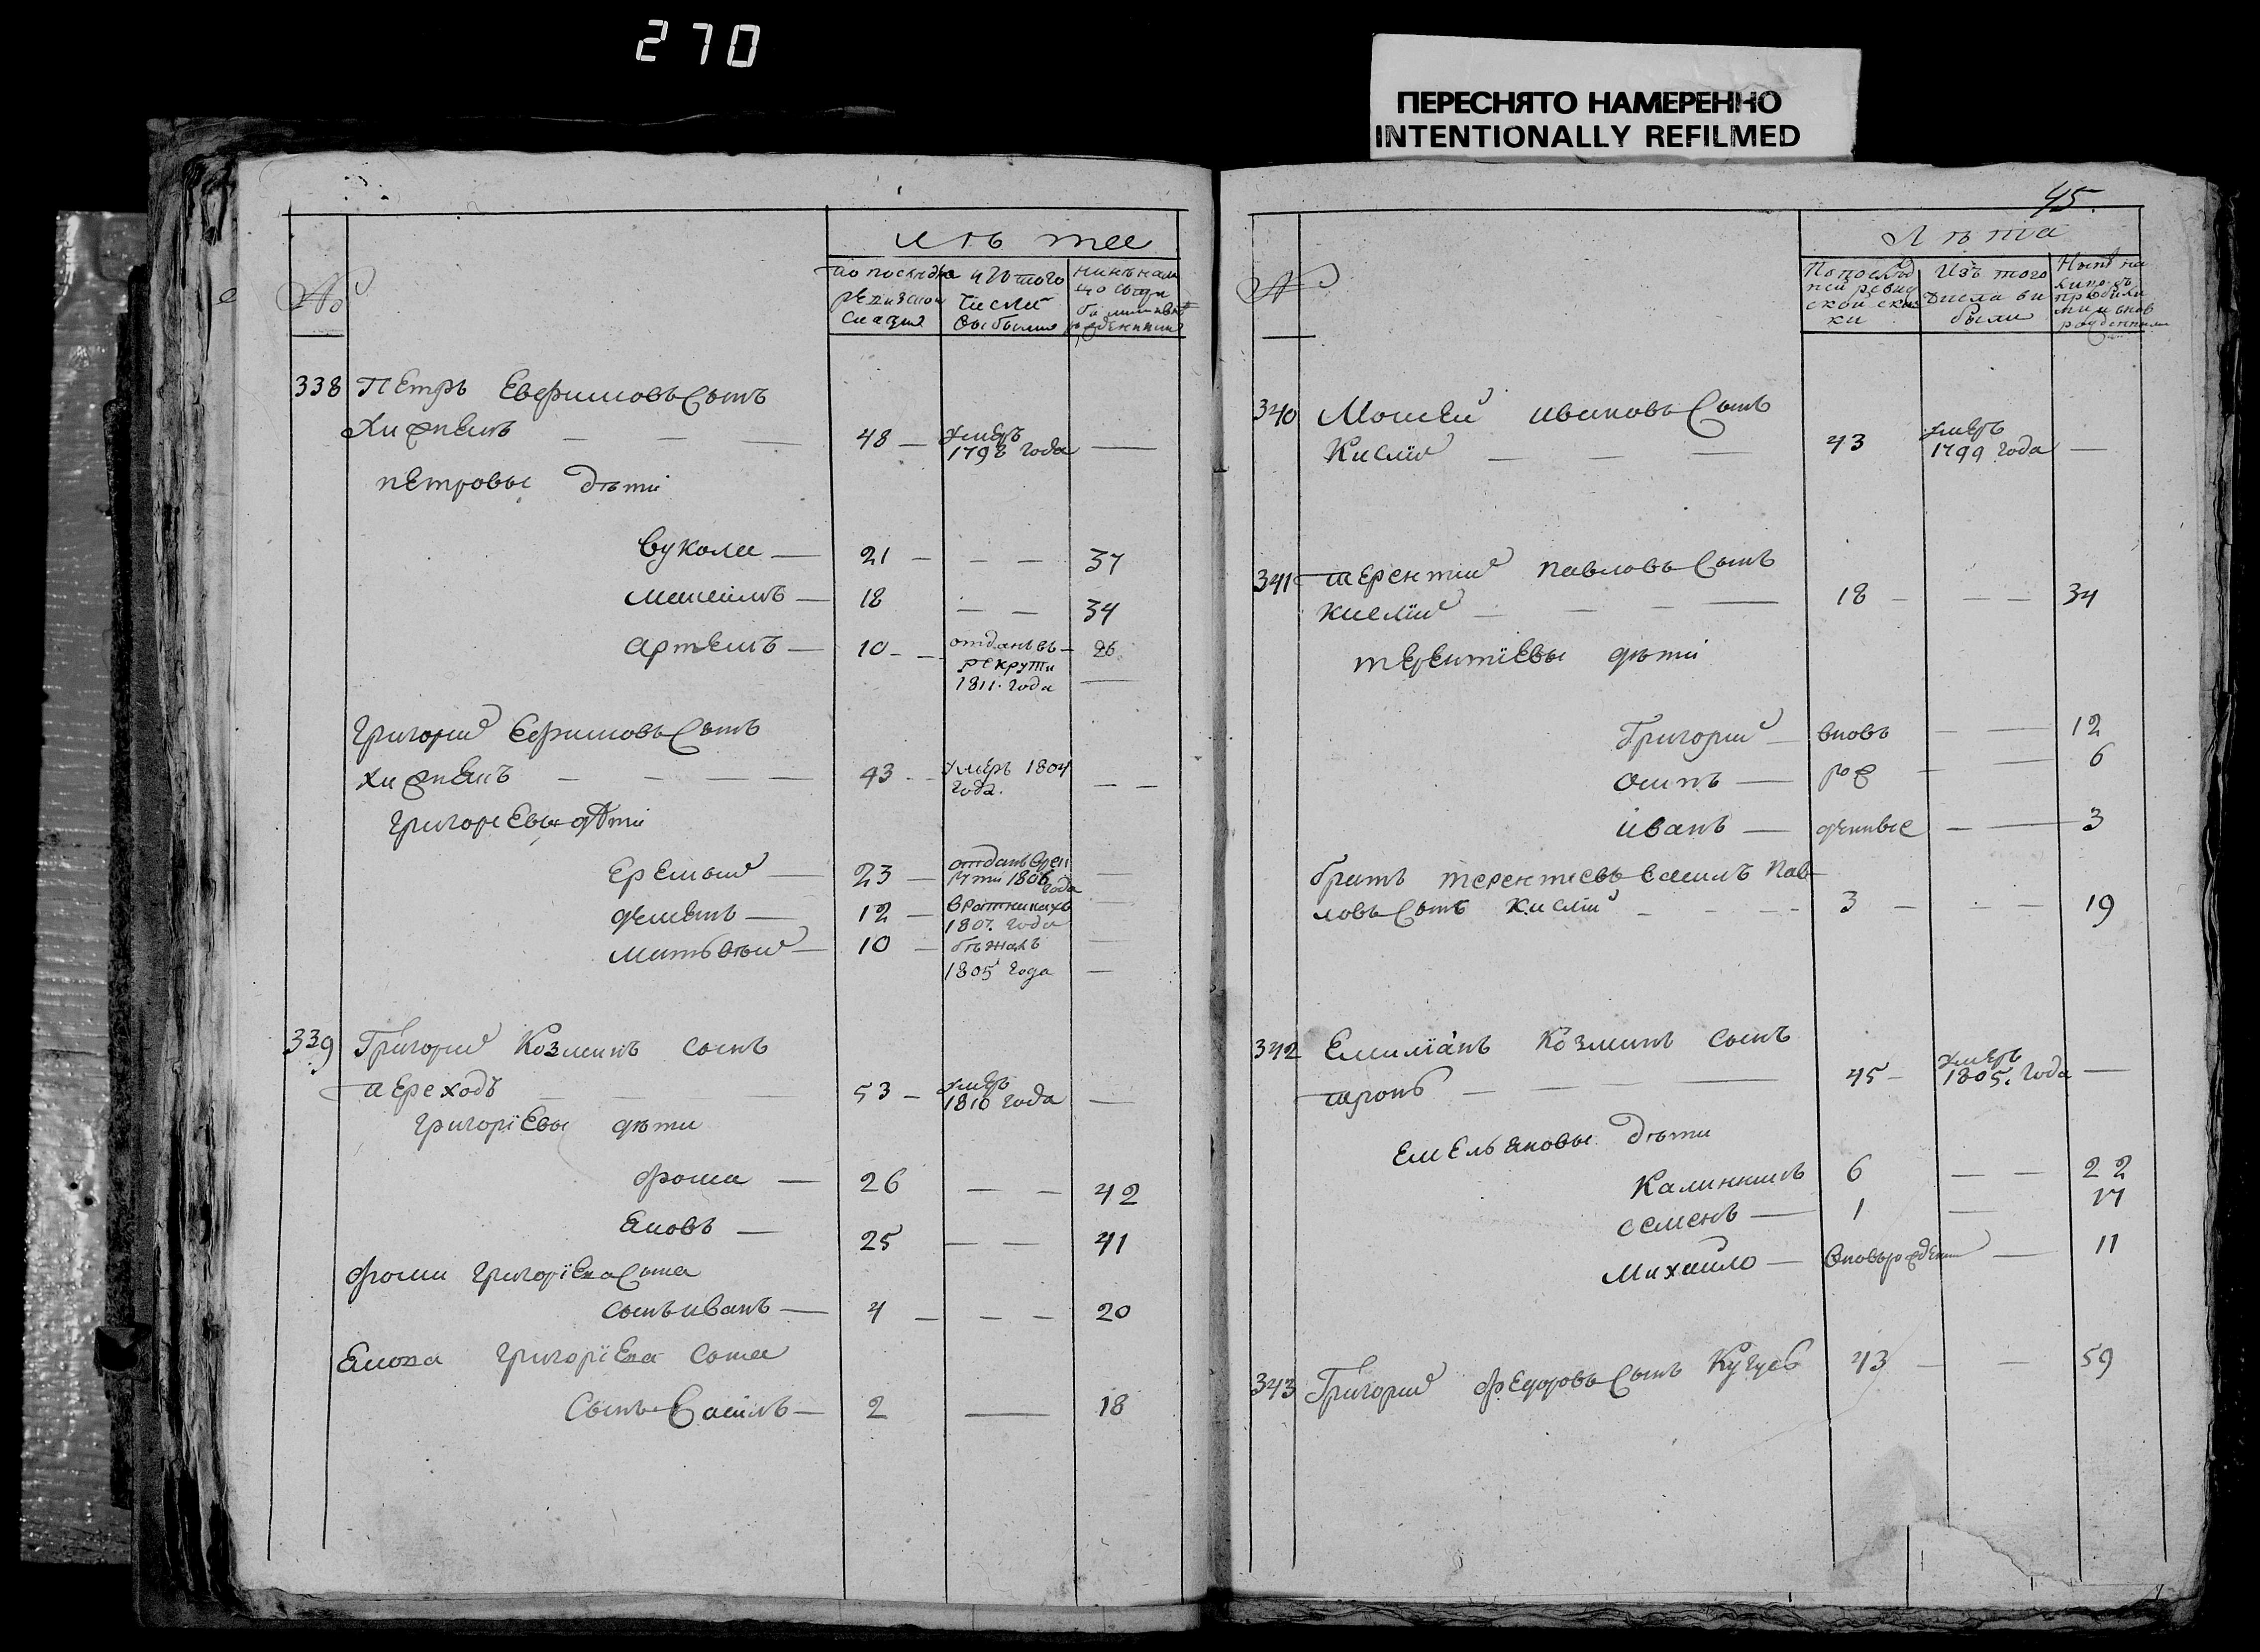 270
ПЕРЕСНЯТО НАМЕРЕННО
INTENTIONALLY REFILMED
№
по последне
ревизской
из того
числа
выбыло
338 Петръ Евфимовъ Сынъ
48 — умеръ
1798 года —
петровы дѣти
вукола — 21 — — — 37
18 — — 34
артемъ — 10 — отданъ въ
рекруты
1811. года
26
Григорий Ефимовъ Сынъ
43 — умеръ 1804
года. — —
григориевы дѣти
Еремѣй — 23 — отданъ в рек
руты 1806
года
дементъ — 12 — в ратникахъ
1807. года
матвѣй — 10 — бѣжалъ
1805 года —
339 Григорий Козминъ сынъ
переходъ — 53 — умеръ
1810 года —
григорїевы дѣти
фома — 26 — — 42
Яковъ — 25 — — 41
фомы григорїева Сына
сынъ иванъ — 4 — — — 20
Якова григорїева сына
Сынъ Васїлъ — 2 — 18
45.
Лѣта
№
По послѣд
ней ревиз
ской сказ
ки
Изъ того
числа вы
были
Нынѣ на
лицо съ
прибыли
ми и внов
рожденными
340 Моисей ивановъ Сынъ
Кислїй — — — 43 умеръ
1799 года —
341 терентий павловъ Сынъ
кислїй — — — 18 — — — 34
терентїевы дѣти
Григорий — вновь — — 12
осипъ — рож — — 6
иванъ — денные — — 3
братъ терентиевъ василъ пав
ловъ Сынъ кислїй — — — 3 — — — 19
342 Емилїанъ Козминъ сынъ
— — 45 — умеръ
1805. года —
Емельяновы дѣти
Калинникъ 6 — — 22
семенъ — 1 — 17
Михайло — вновьрожден — 11
343 Григорий Федоровъ Сынъ 43 — — 59